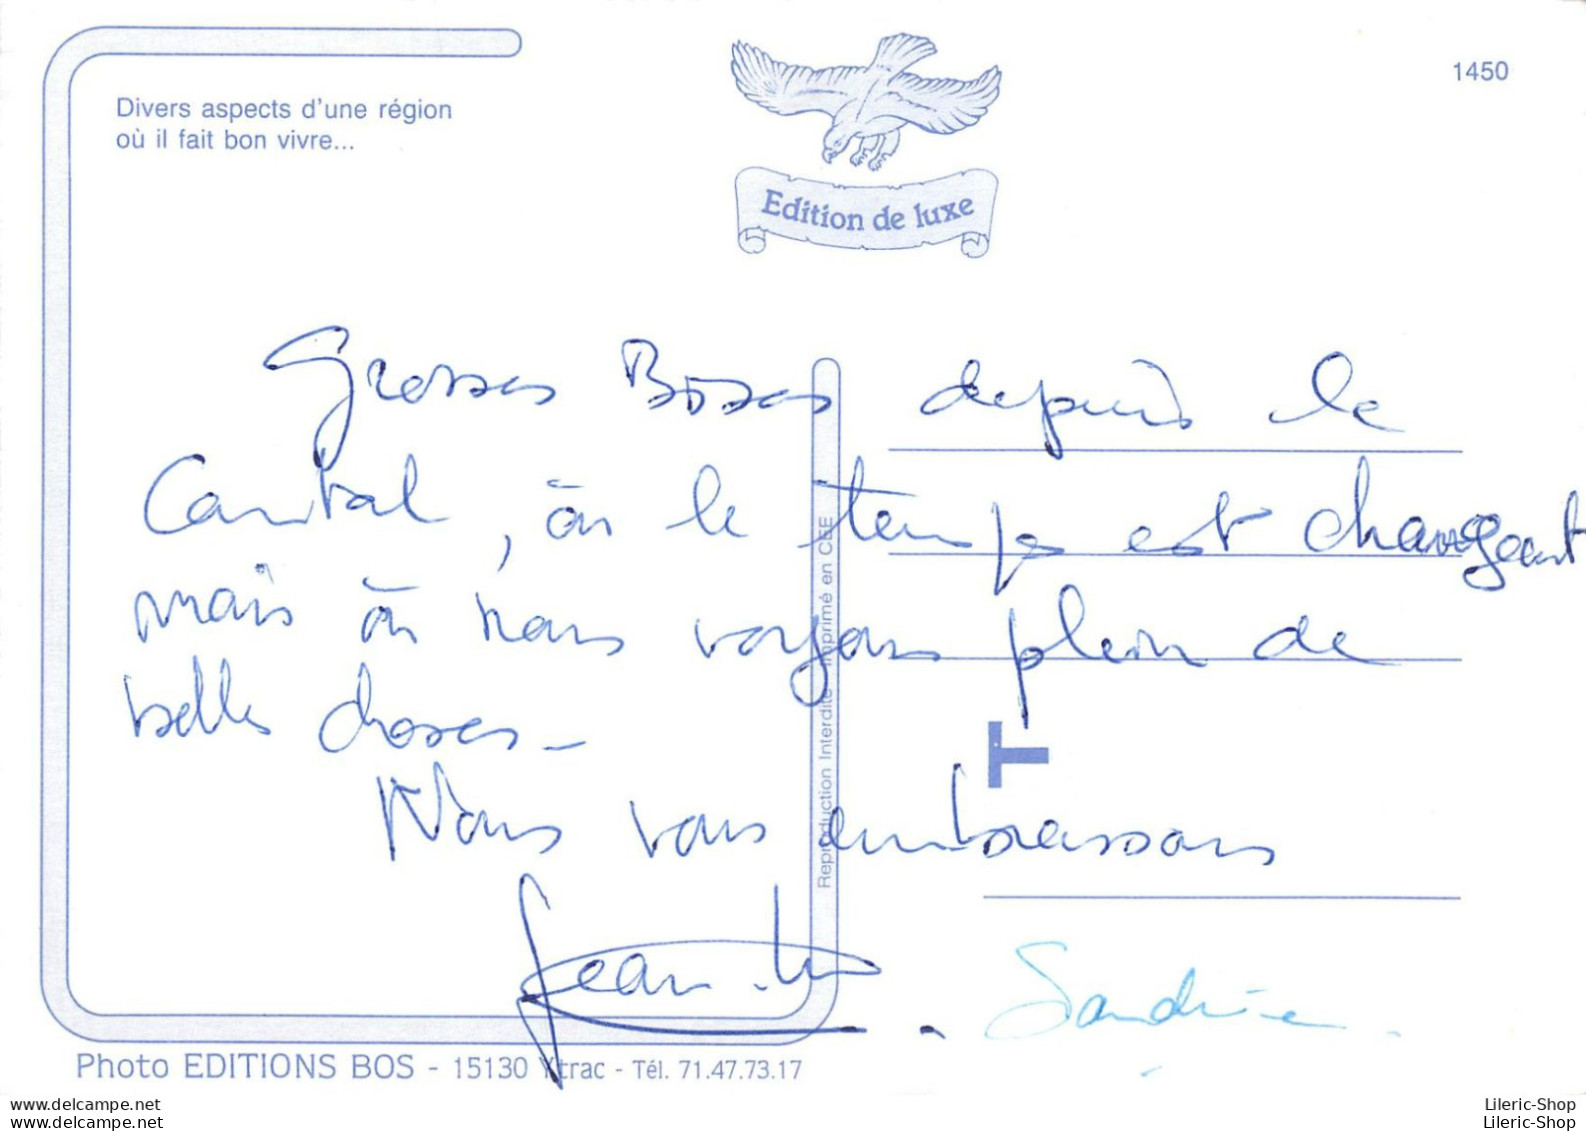 1450
Divers aspects d'une région
où il fait bon vivre...
Edition de luxe
Grosses Bises depuis le
Cantal, où le temps est changeant
mais où nous voyons plein de
belles choses -
Nous vous embrassons
Jean-
Sandrine
T
Reproduction Interdite - Imprimé en CEE
Photo EDITIONS BOS - 15130 Ytrac - Tél. 71.47.73.17
www.delcampe.net
www.delcampe.net
Lileric-Shop
Lileric-Shop